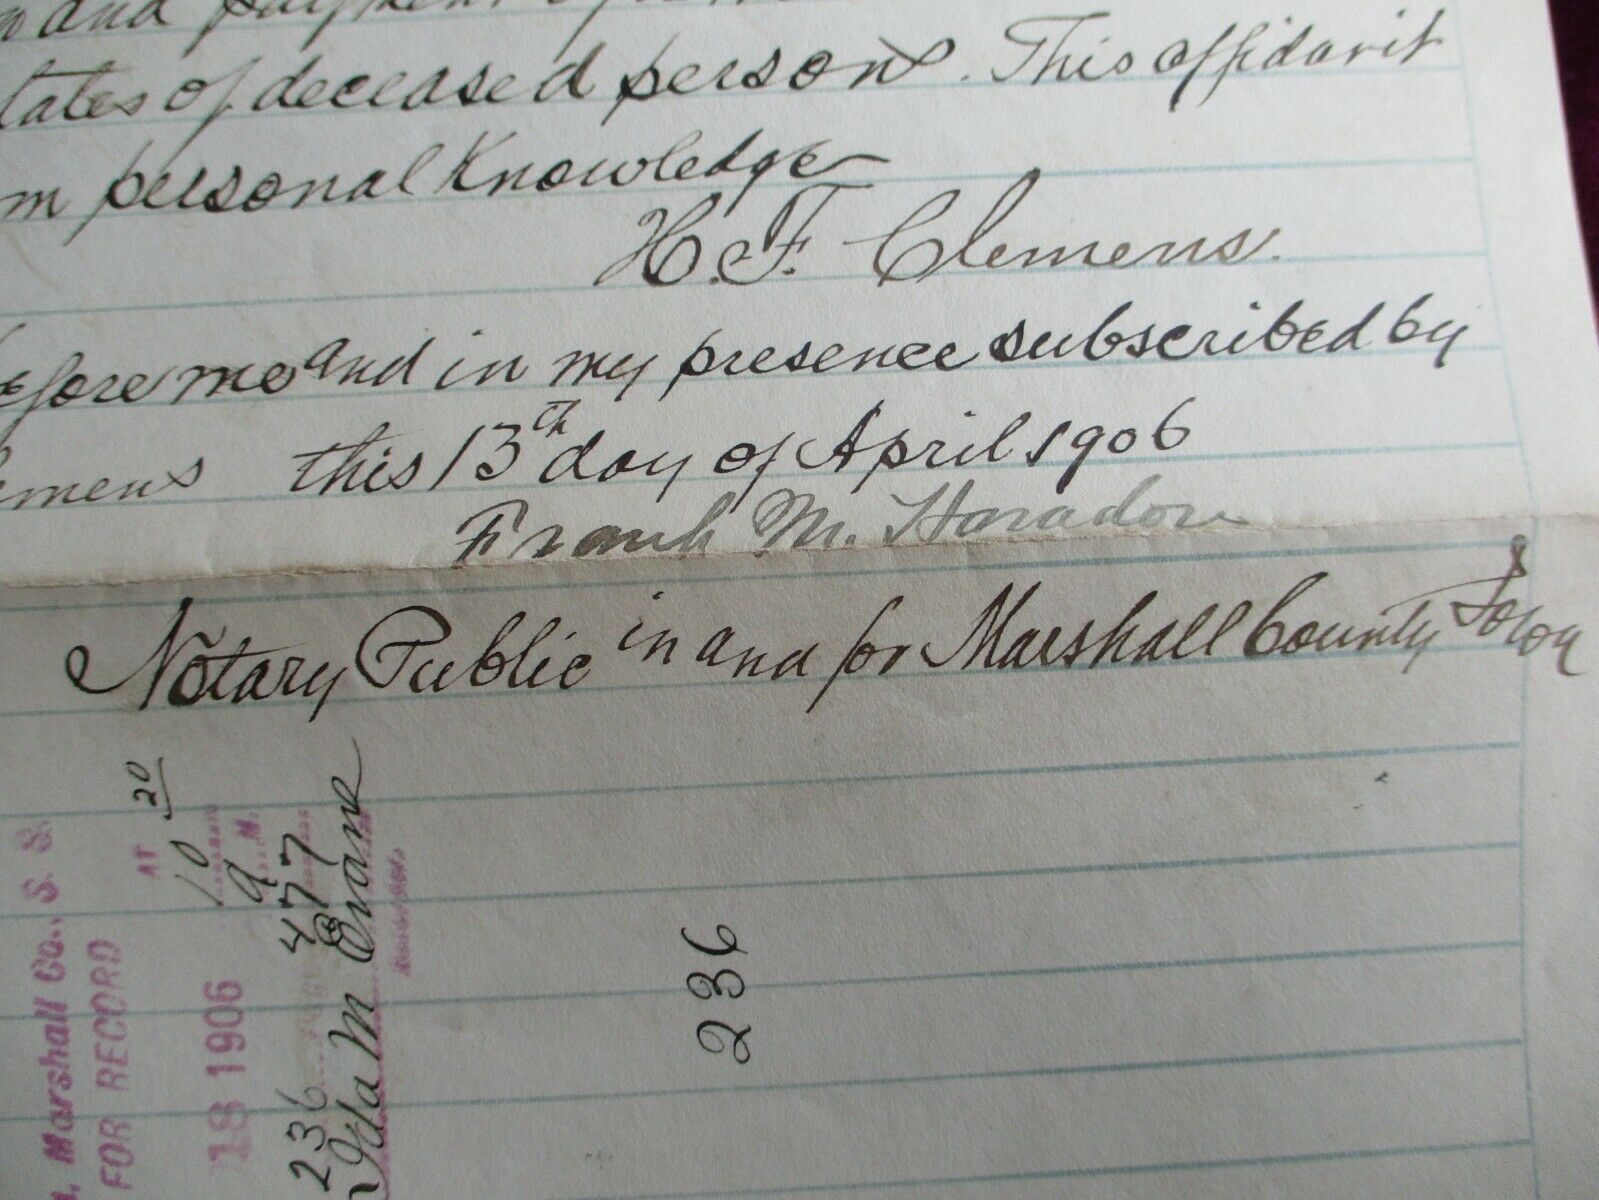 and payment
tates of deceased persons. This affidavit
m personal Knowledge
H. F. Clemens.
efore me and in my presence subscribed by
emens this 13th day of April 1906
Frank M. Haradon
Notary Public in and for Marshall County Iowa
Marshall Co., S. S.
FOR RECORD
AT 20
10
18 1906 a M.
236 477
Ida M Evans
236